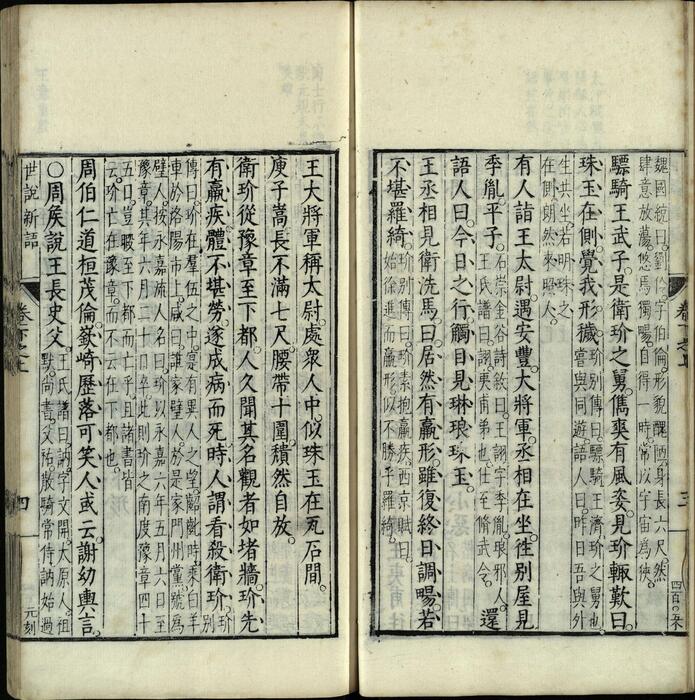 魏國統曰劉伶字伯倫形貌醜陋身長六尺然
肆意放蕩悠焉獨暢自得一時常以宇宙為狹
驃騎王武子是衛玠之舅儁爽有風姿見玠輒歎曰
珠玉在側覺我形穢
玠別傳曰驃騎王濟玠之舅也
嘗與同遊語人曰昨日吾與外
生共坐若明珠之
在側朗然來照人
有人詣王太尉遇安豐大將軍丞相在坐往別屋見
季胤平子
石崇金谷詩敘曰王詡字季胤琅邪人
王氏譜曰詡夷甫弟也仕至脩武令
還
語人曰今日之行觸目見琳琅珠玉
王丞相見衛洗馬曰居然有羸形雖復終日調暢若
不堪羅綺
玠別傳曰玠素抱羸疾西京賦曰
始徐進而羸形似不勝乎羅綺
卷下之上
三
四百〇八
王大將軍稱太尉處衆人中似珠玉在瓦石間
庾子嵩長不滿七尺腰帶十圍頹然自放
衛玠從豫章至下都人久聞其名觀者如堵牆玠先
有羸疾體不堪勞遂成病而死時人謂看殺衛玠
玠別
傳曰玠在羣伍之中寔有異人之望齠齔時乘白羊
車於洛陽市上咸曰誰家璧人於是家門州黨號為
璧人按永嘉流人名曰玠以永嘉六年五月六日至
豫章其年六月二十日卒此則玠之南度豫章四十
五日豈暇至下都而亡乎且諸書皆
云玠亡在豫章而不云在下都也
周伯仁道桓茂倫嶔崎歷落可笑人或云謝幼輿言
〇周侯說王長史父
王氏譜曰訥字文開太原人祖
默尚書父祐散騎常侍訥始過
世說新語
卷下之上
四
元刻